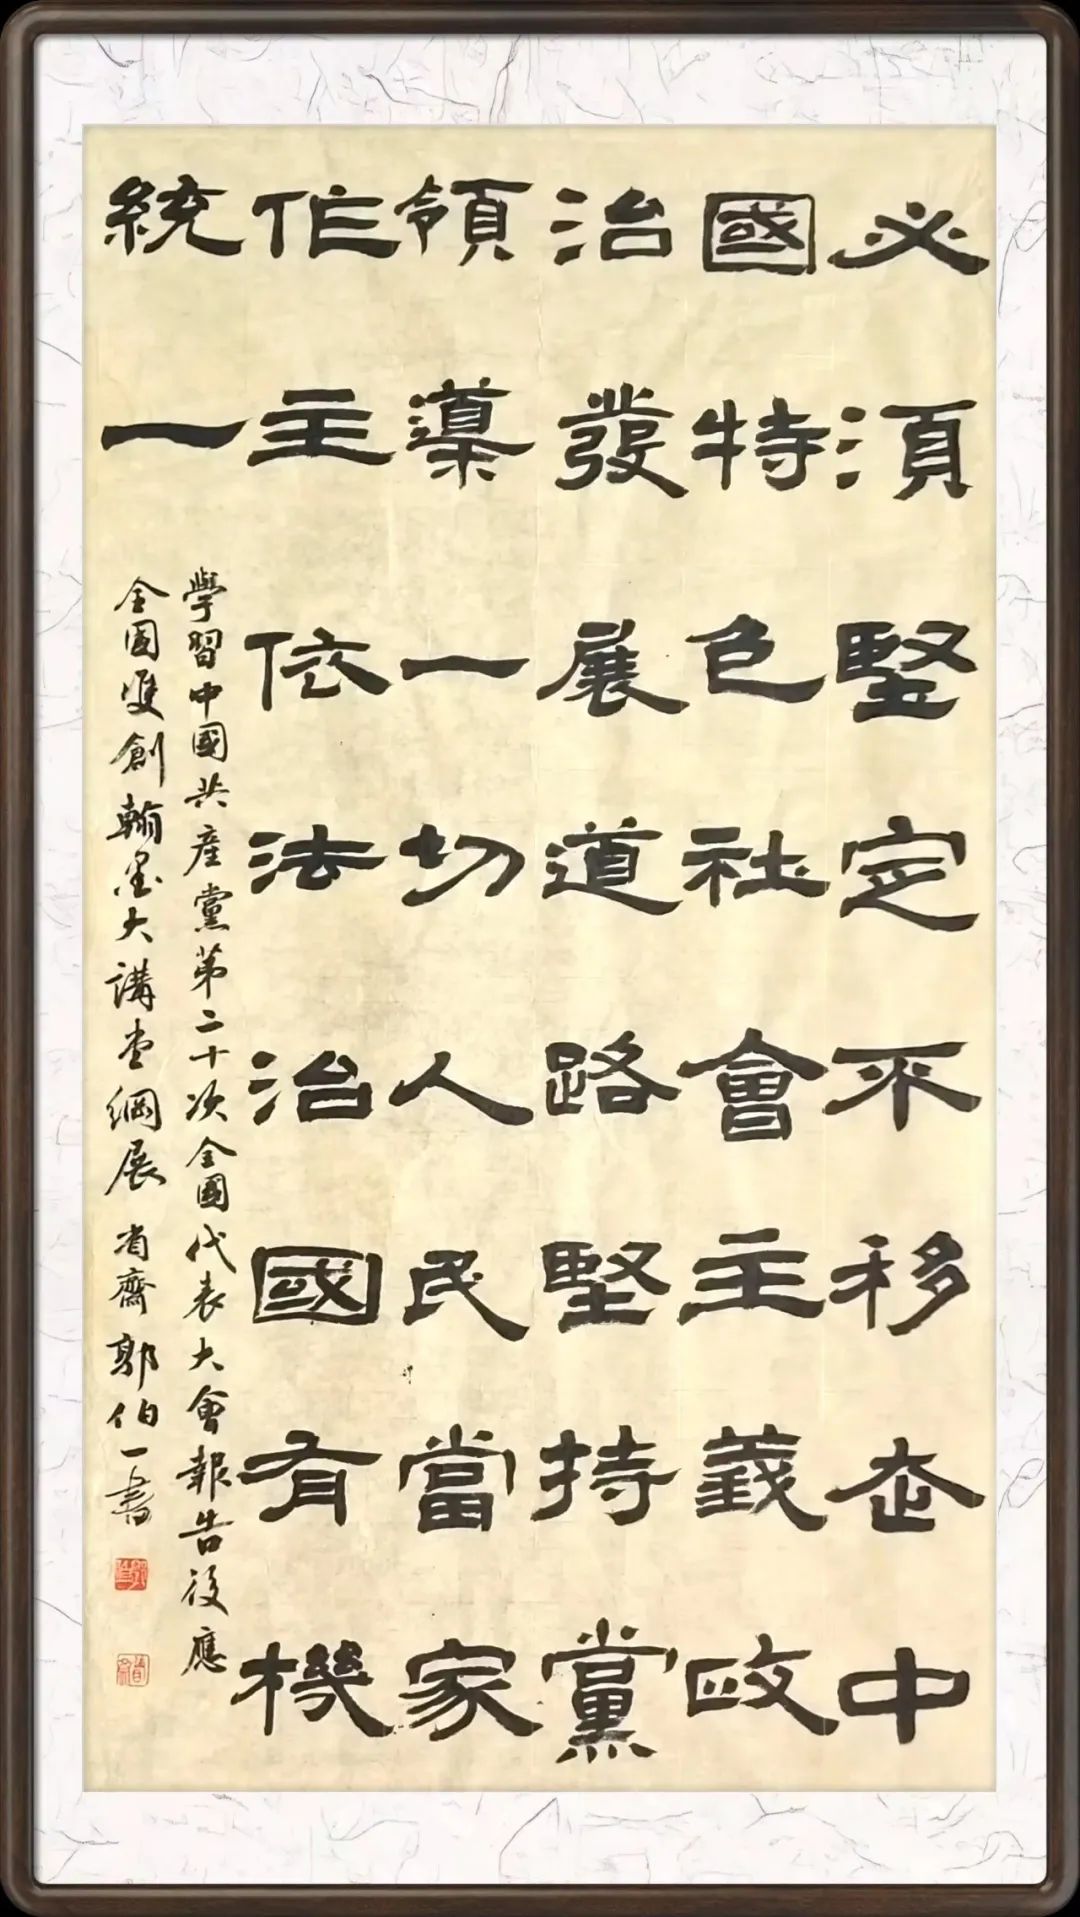 必須堅定不移走中
國特色社會主義政
治發展道路堅持黨
領導一切人民當家
作主依法治國有機
統一
學習中國共產黨第二十次全國代表大會報告後應
全國雙創翰墨大講堂網展 省齋郭伯一書